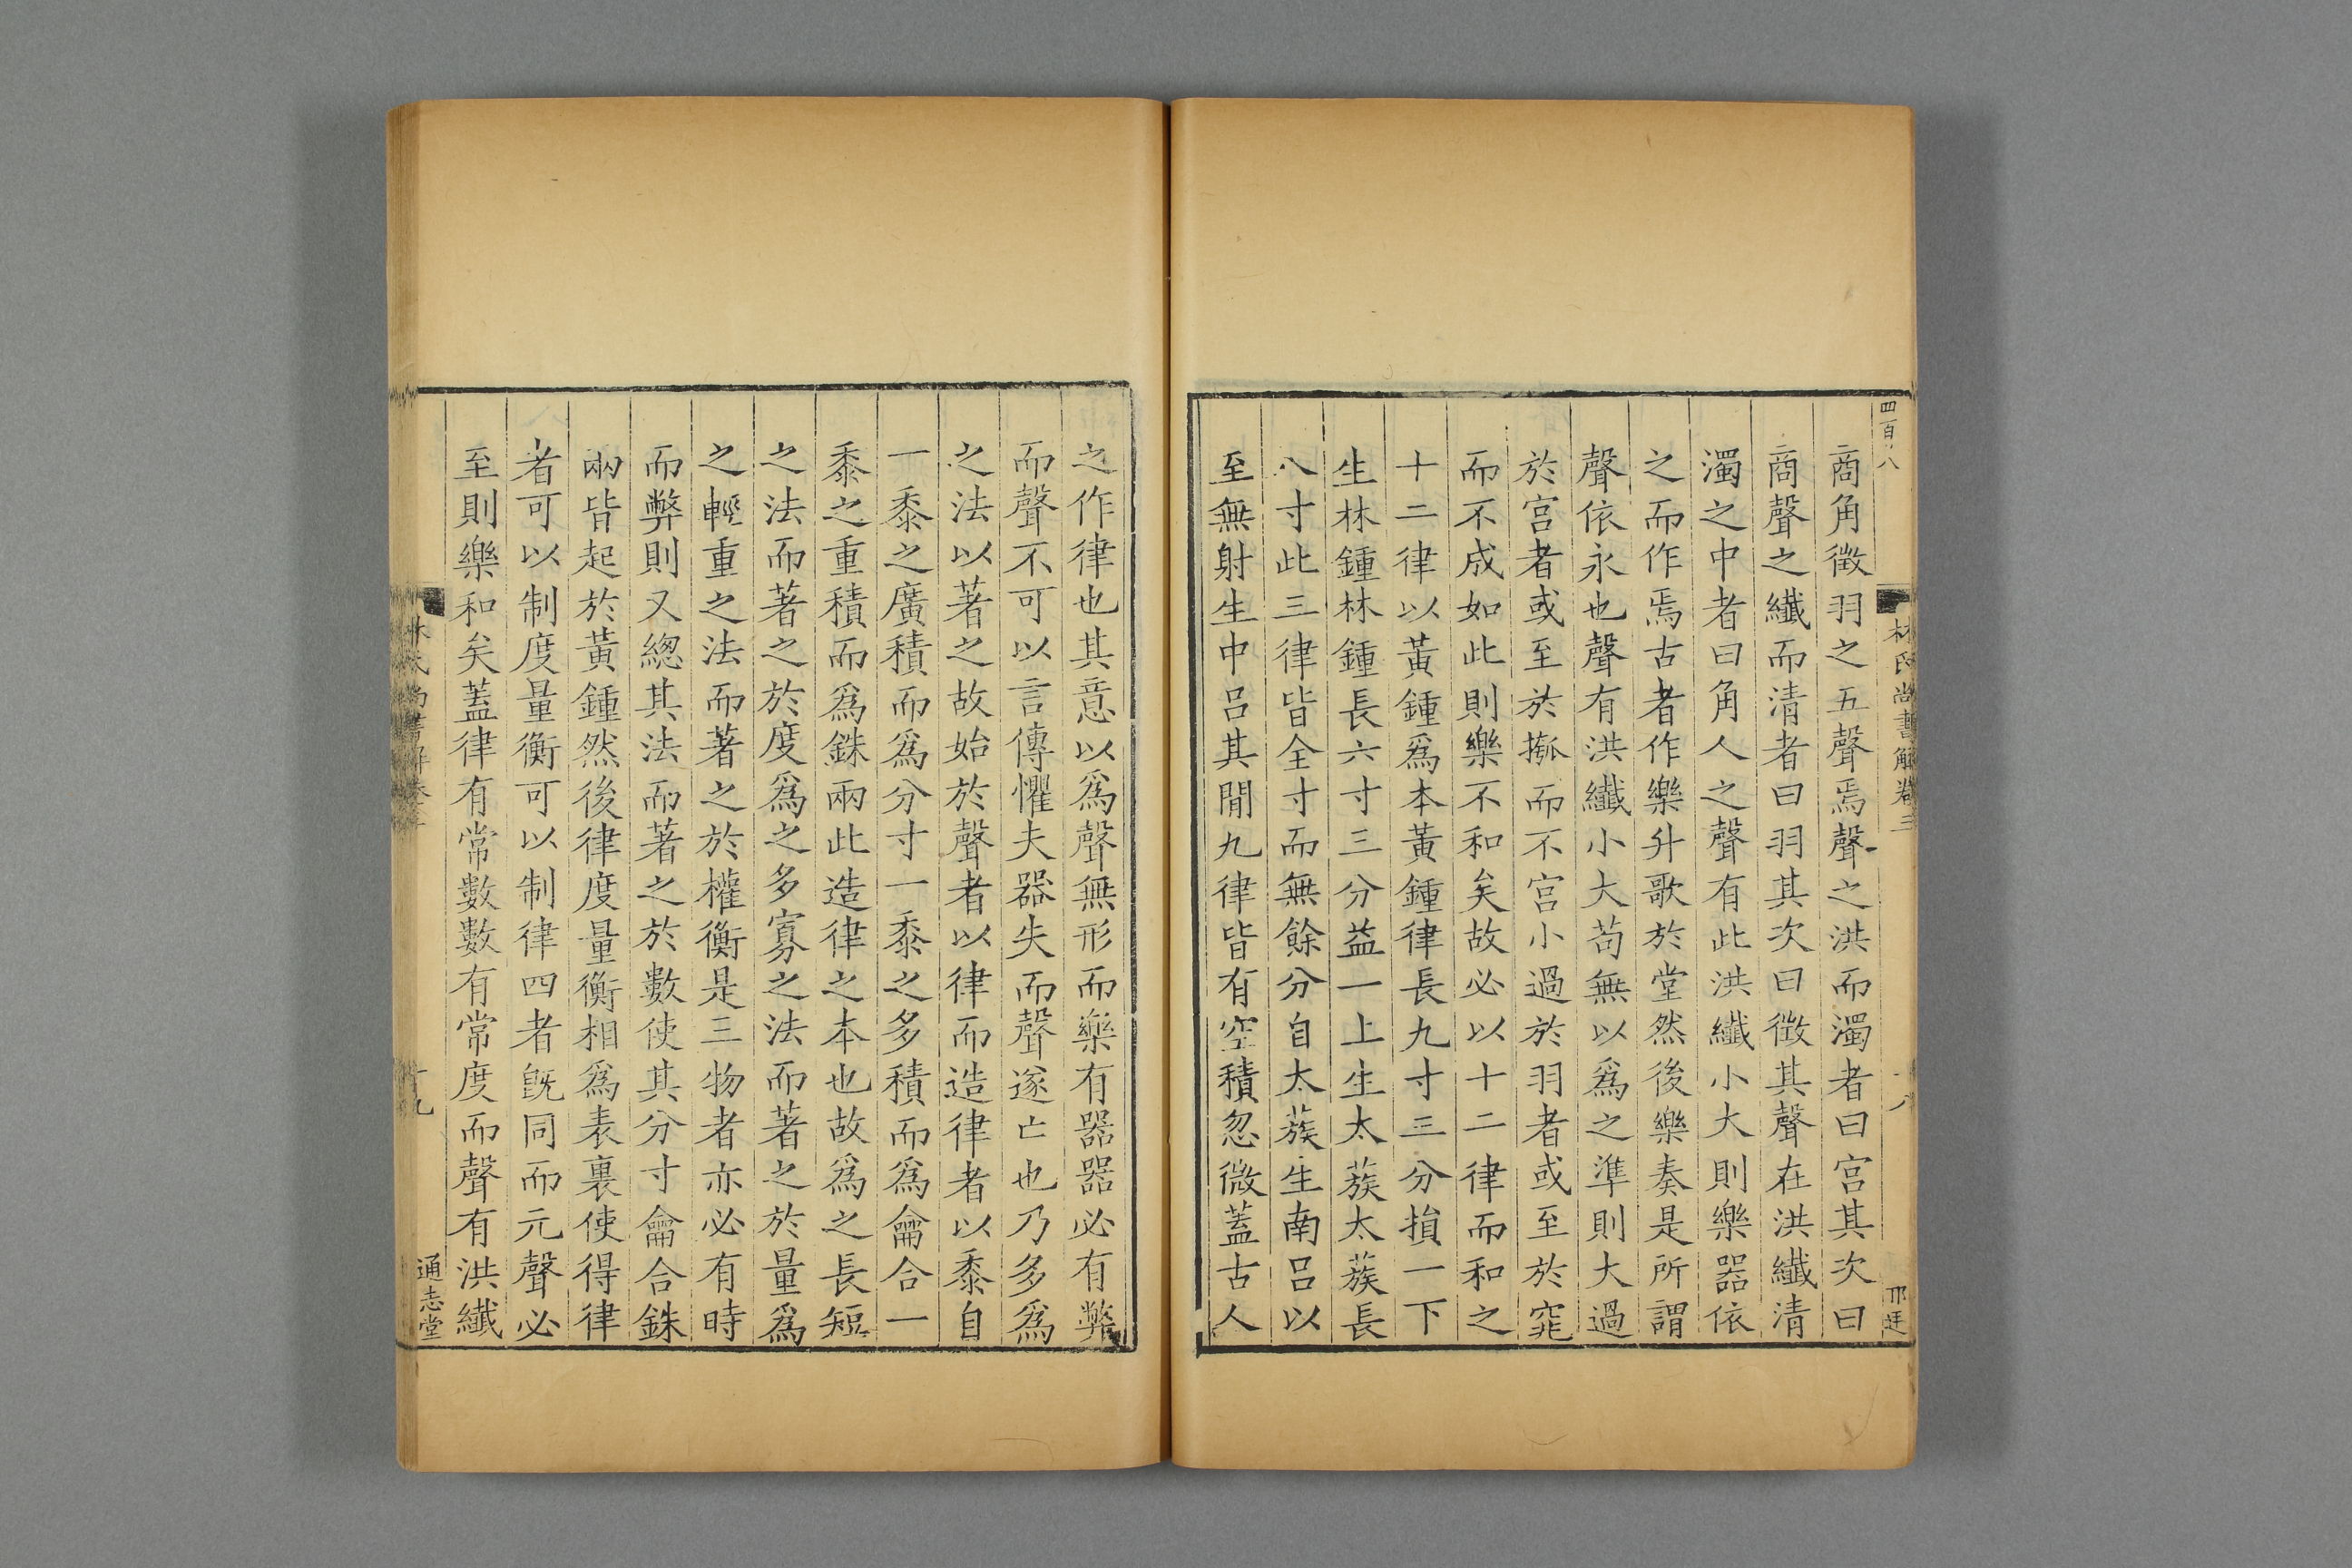 四百八
林氏尚書解卷三
八
商角徴羽之五聲焉聲之洪而濁者曰宫其次曰
商聲之纎而清者曰羽其次曰徴其聲在洪纎清
濁之中者曰角人之聲有此洪纎小大則樂器依
之而作焉古者作樂升歌於堂然後樂奏是所謂
聲依永也聲有洪纎小大苟無以爲之準則大過
於宫者或至於摦而不宫小過於羽者或至於窕
而不成如此則樂不和矣故必以十二律而和之
十二律以黃鍾爲本黃鍾律長九寸三分損一下
生林鍾林鍾長六寸三分益一上生太蔟太蔟長
八寸此三律皆全寸而無餘分自太蔟生南呂以
至無射生中呂其閒九律皆有空積忽微蓋古人
之作律也其意以爲聲無形而樂有器器必有弊
而聲不可以言傳懼夫器失而聲遂亡也乃多爲
之法以著之故始於聲者以律而造律者以黍自
一黍之廣積而爲分寸一黍之多積而爲龠合一
黍之重積而爲銖兩此造律之本也故爲之長短
之法而著之於度爲之多寡之法而著之於量爲
之輕重之法而著之於權衡是三物者亦必有時
而弊則又緫其法而著之於數使其分寸龠合銖
兩皆起於黃鍾然後律度量衡相爲表裏使得律
者可以制度量衡可以制律四者旣同而元聲必
至則樂和矣蓋律有常數數有常度而聲有洪纎
林氏尚書解卷三
十九
通志堂